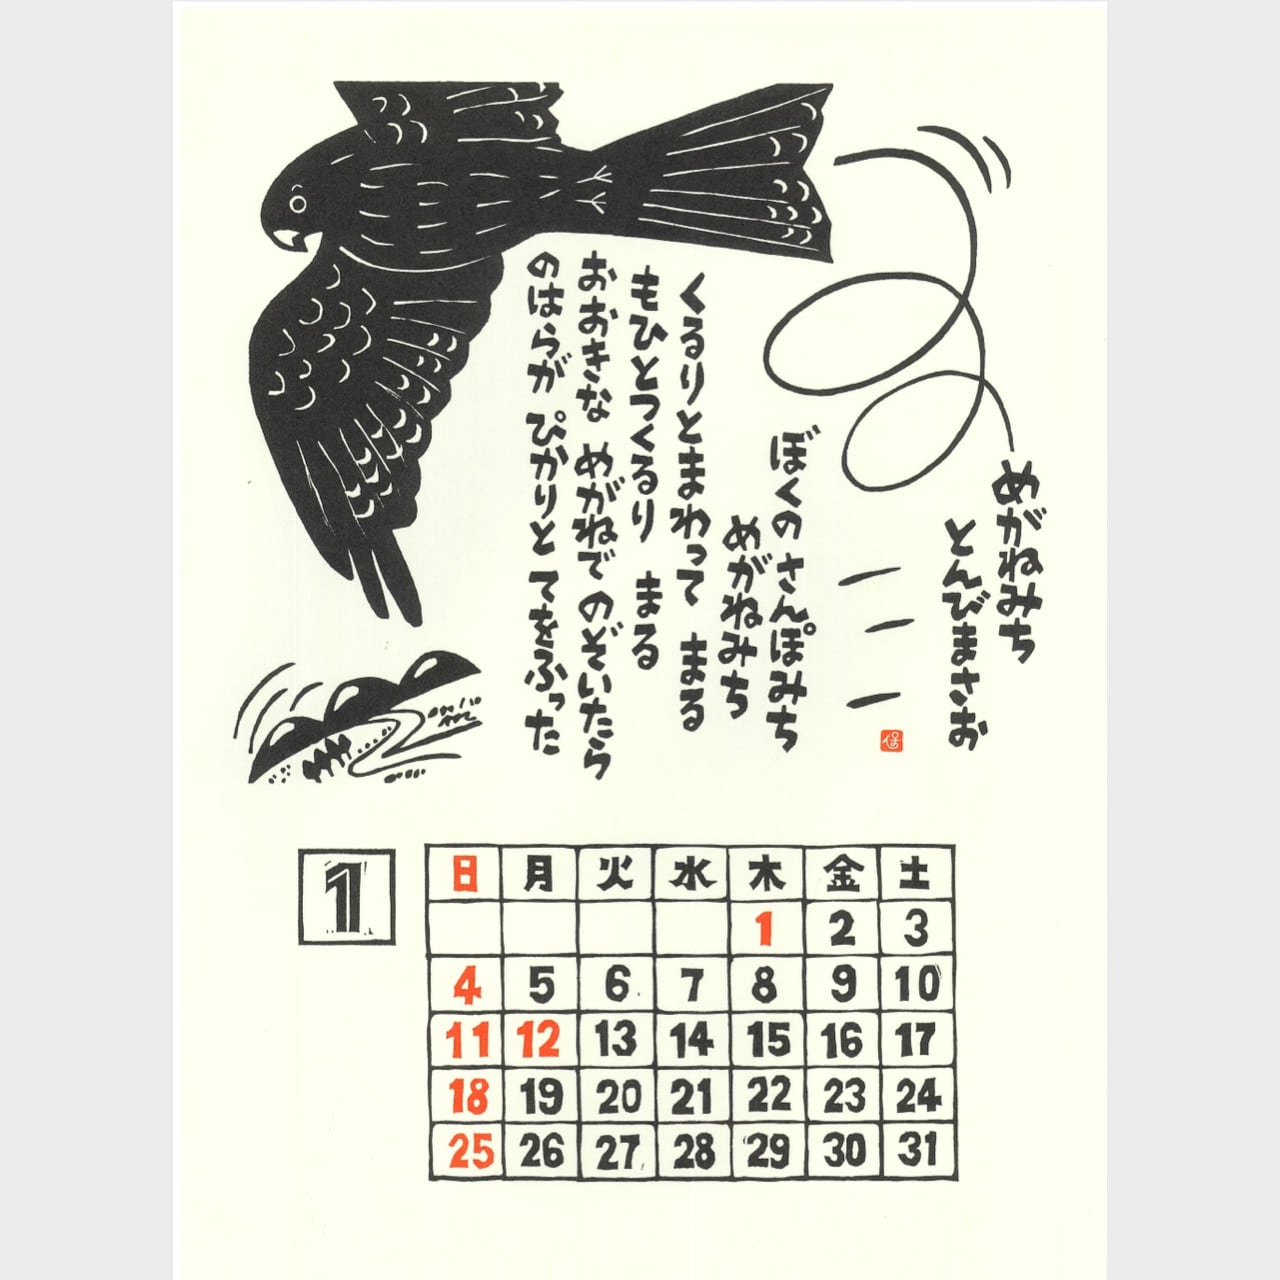 めがねみち
とんびまさお
ぼくの さんぽみち
めがねみち
くるりとまわって まる
もひとつくるり まる
おおきな めがねで のぞいたら
のはらが ぴかりと てをふった
1
日 月 火 水 木 金 土
1 2 3
4 5 6 7 8 9 10
11 12 13 14 15 16 17
18 19 20 21 22 23 24
25 26 27 28 29 30 31